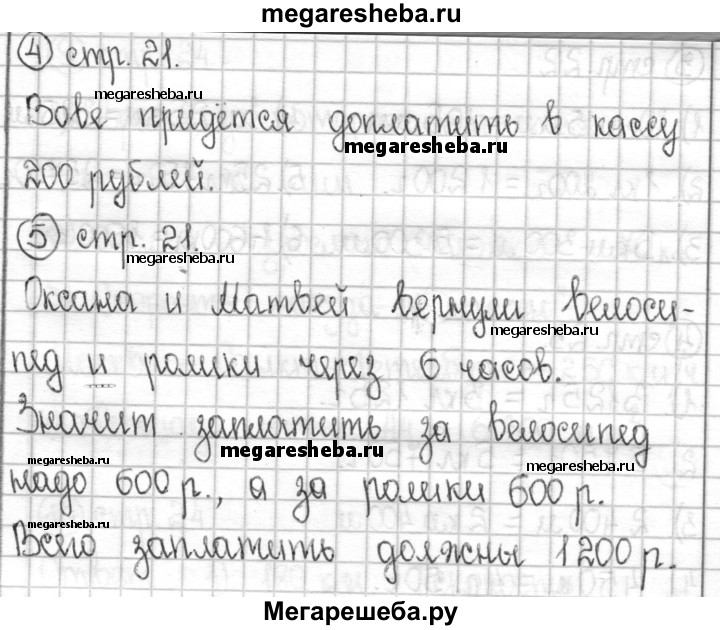 megaresheba.ru
4 стр. 21.
megaresheba.ru
Вове придётся доплатить в кассу
megaresheba.ru
200 рублей.
5 стр. 21.
megaresheba.ru
Оксана и Матвей вернули велоси-
megaresheba.ru
пед и ролики через 6 часов.
Значит заплатить за велосипед
megaresheba.ru
megaresheba.ru
megaresheba.ru
надо 600 р., а за ролики 600 р.
megaresheba.ru
megaresheba.ru
Всего заплатить должны 1200 р.
Мегарешеба.ру